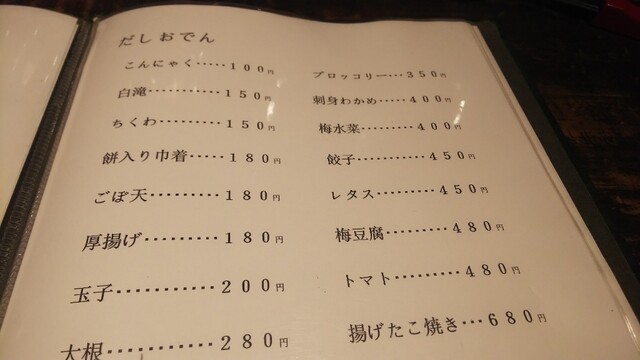 だしおでん
こんにゃく・・・・・100円
白滝・・・・・・・・・・・150円
ちくわ・・・・・・・・・150円
餅入り巾着・・・・・180円
ごぼ天・・・・・・・・・180円
厚揚げ・・・・・・・・・180円
玉子・・・・・・・・・・・200円
大根・・・・・・・・・・・280円
ブロッコリー・・・350円
刺身わかめ・・・・・400円
梅水菜・・・・・・・・・400円
餃子・・・・・・・・・・・450円
レタス・・・・・・・・・450円
梅豆腐・・・・・・・・・480円
トマト・・・・・・・・・480円
揚げたこ焼き・・・680円